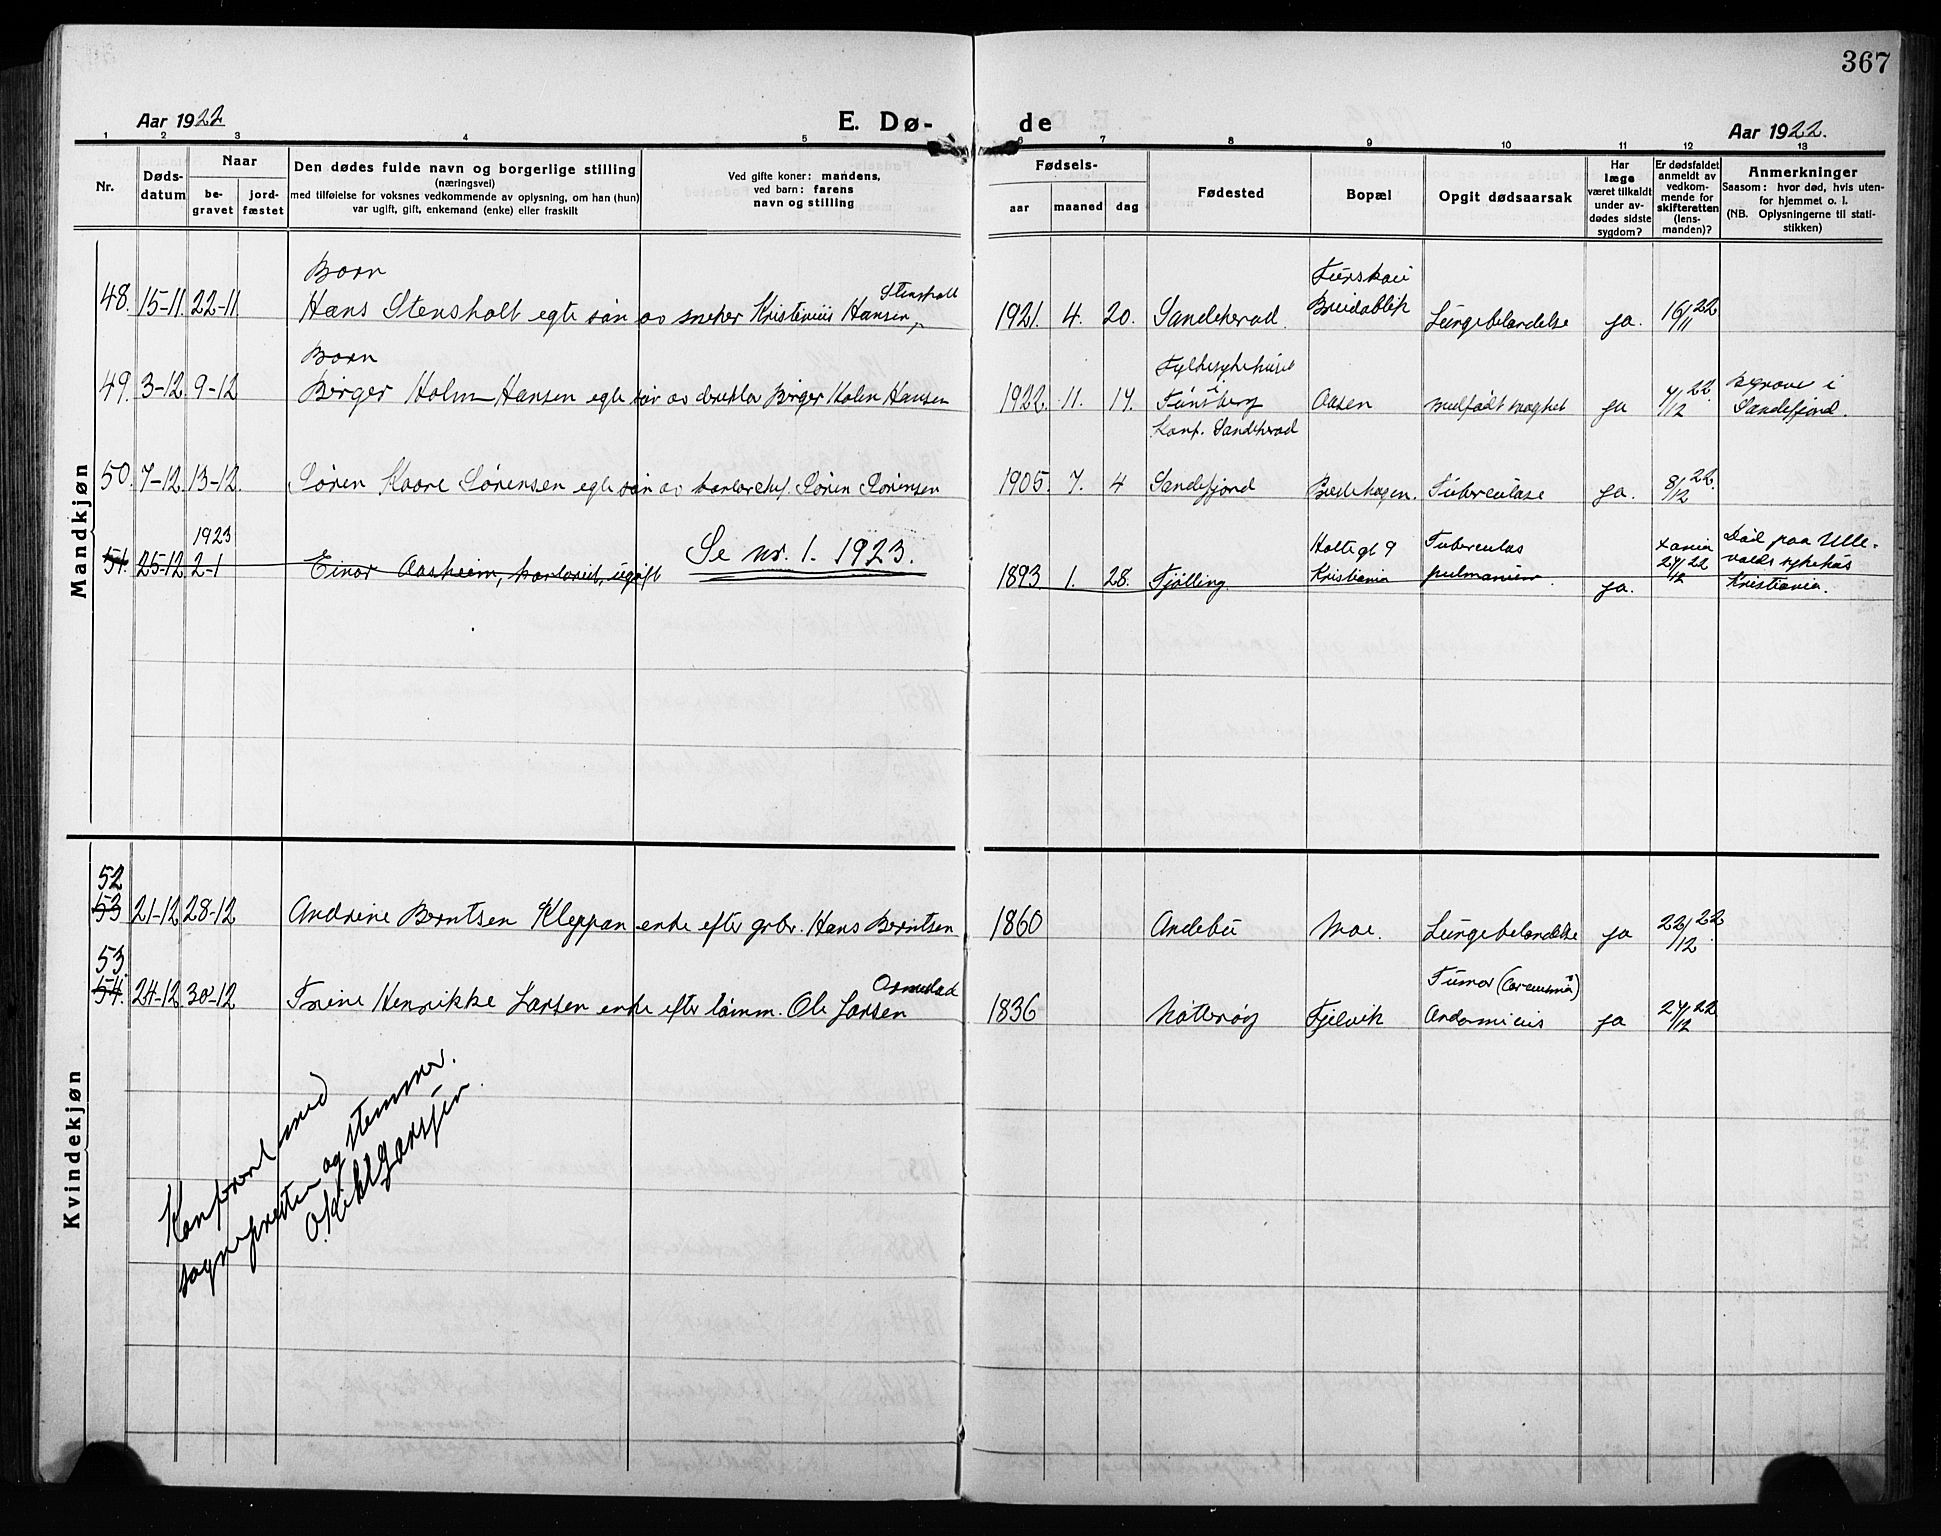 367
Aar 1922
E. Dø-
de
Aar 1922.
1 2 3 4 5 6 7 8 9 10 11 12 13
Nr.
Døds-
datum
Naar
be-
gravet
jord-
fæstet
Den dødes fulde navn og borgerlige stilling
(næringsvei)
med tilføielse for voksnes vedkommende av oplysning, om han (hun)
var ugift, gift, enkemand (enke) eller fraskilt
Ved gifte koner: mandens,
ved barn: farens
navn og stilling
Fødsels-
aar
maaned
dag
Fødested
Bopæl
Opgit dødsaarsak
Har
læge
været tilkaldt
under av-
dødes sidste
sygdom?
Er dødsfaldet
anmeldt av
vedkom-
mende for
skifteretten
(lens-
manden)?
Anmerkninger
Saasom: hvor død, hvis uten-
for hjemmet o. l.
(NB. Oplysningerne til stati-
stikken)
Mandkjøn
Barn
Stensholt
48. 15-11. 22-11 Hans Stensholt egte søn av snekker Kristinius Hansen,
1921. 4. 20. Sandeherad. Breidablik Lungebetændelse ja. 16/11 22
Barn
49. 3-12. 9-12 Birger Holm Hansen egte søn av direktør Birger Holm Hansen
Fylkesykehuset
i
1922. 11. 14. Tønsberg Aasen medfødt svaghet ja 4/12 22.
Begravet i
Sandefjord.
Kanf. Sandeherad
50. 7-12. 13-12. Søren Kaare Sørensen egte søn av kontorchef. Søren Sørensen
1905. 7. 4 Sandefjord Tuberculose ja. 8/12 22.
1923
51. 25-12. 2-1 Einar Aasheim, kontorist, ugift
Se nr. 1. 1923.
1893 1. 28. Tjølling.
Holtegt 9
Kristiania
Tuberculos
pulmonum.
ja.
Xania
27/12 22
Død paa Ulle-
vaals sykehus
Kristiania.
Kvindekjøn
52
53 21-12 28-12 Andrine Berntsen Kleppan enke efter grbr. Hans Berntsen
1860 Andebu Moe. Lungebetændelse ja 22/12 22
53.
54. 24-12 30-12 Trine Henrikke Larsen enke efter tømm. Ole Larsen
1836 Nøtterøy Fjelvik
Tumor
ja 27/12 22
Konferert med
sognepresten og stemmer.